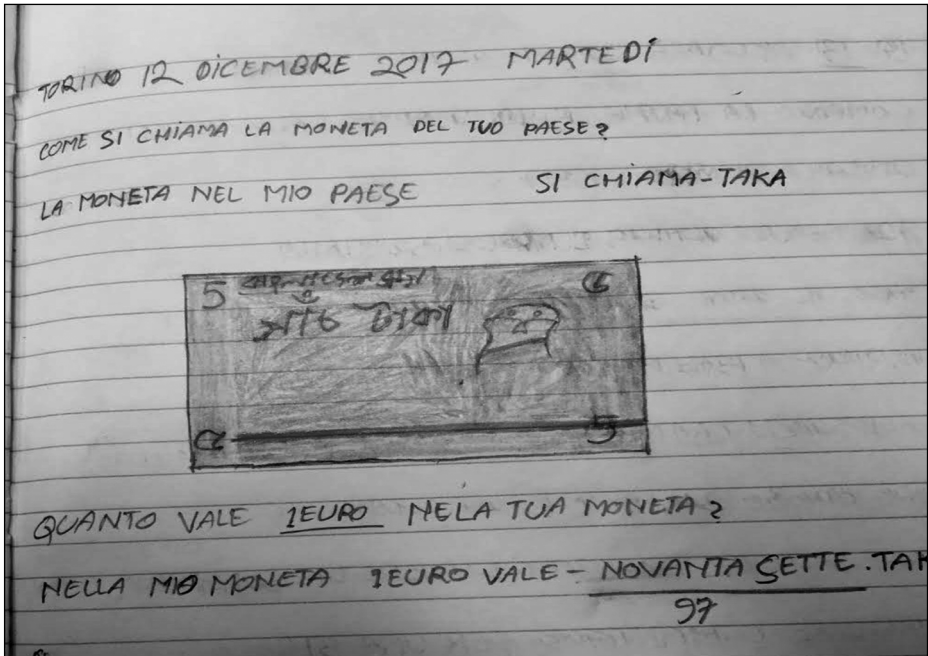 TORINO 12 DICEMBRE 2017 MARTEDÍ
COME SI CHIAMA LA MONETA DEL TUO PAESE?
LA MONETA NEL MIO PAESE SI CHIAMA-TAKA
5 ৫
পাঁচ টাকা
৫ 5
QUANTO VALE 1EURO NELA TUA MONETA?
NELLA MIO MONETA 1EURO VALE - NOVANTA SETTE. TAK
97